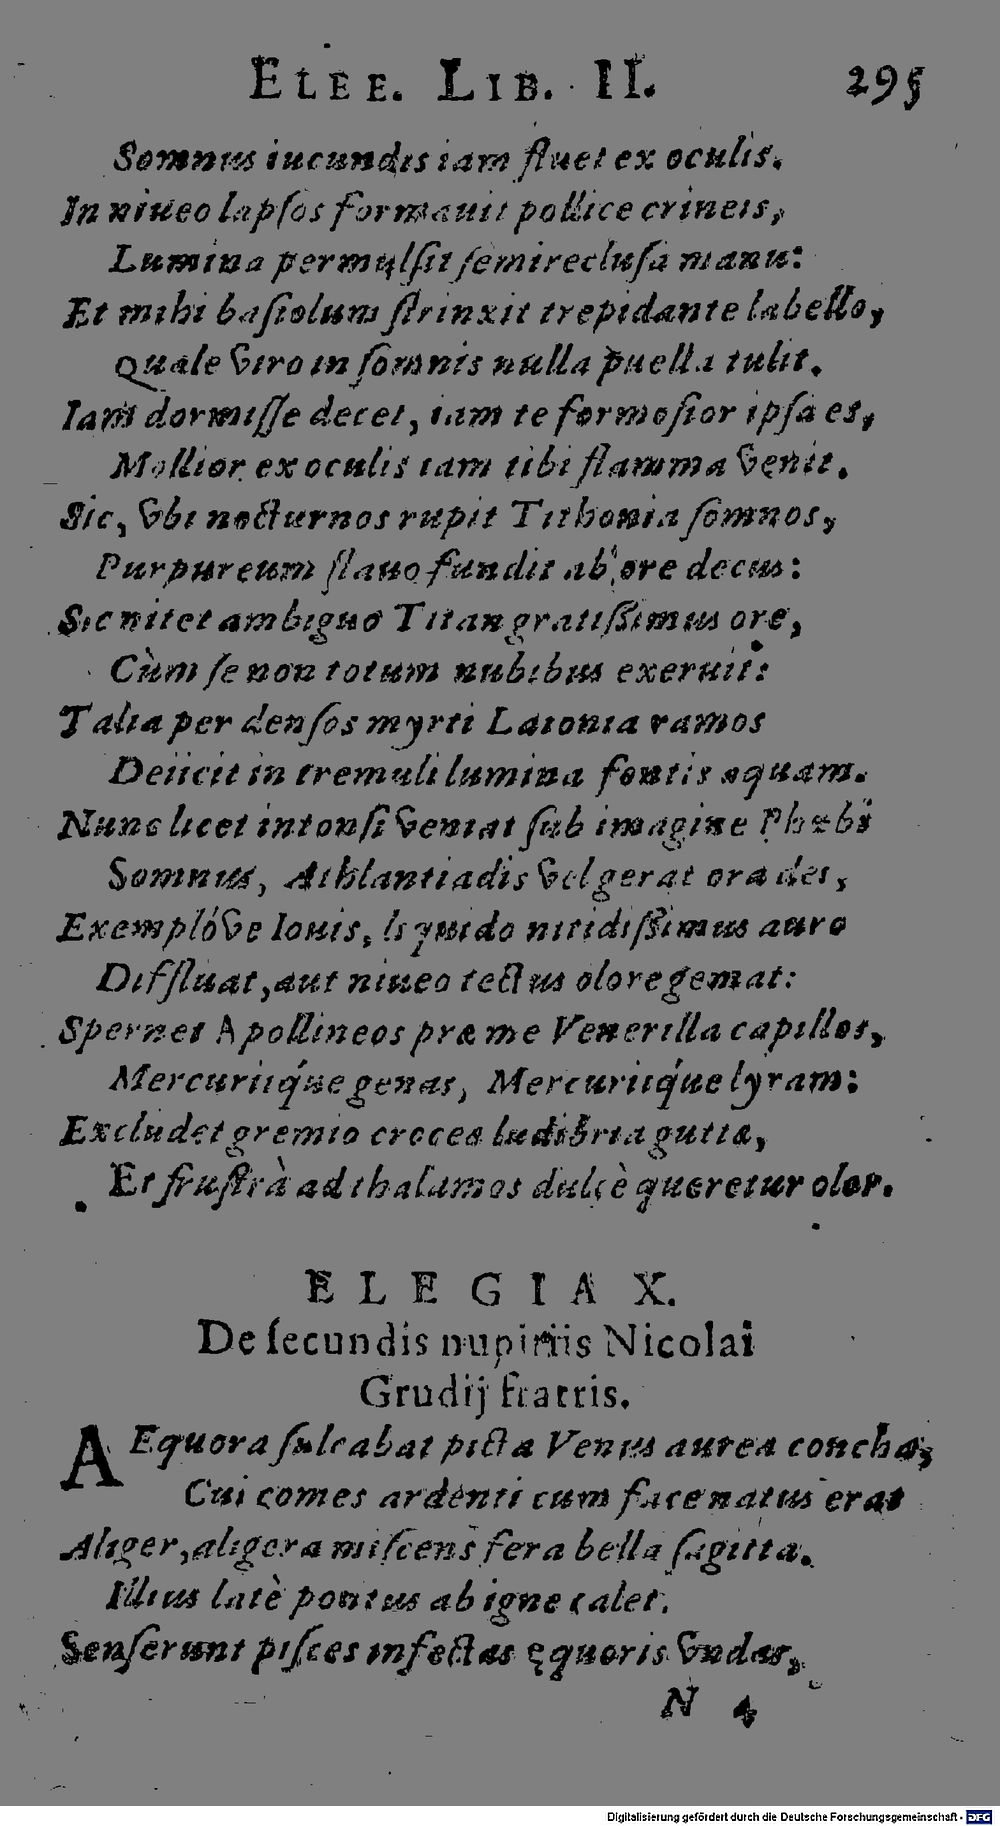 ELEE. LIB. II. 295
Somnus iucundis iam fluet ex oculis.
In niueo lapſos formauit pollice crineis,
Lumina permulſit ſemirecluſa manu:
Et mihi baſiolum ſtrinxit trepidante labello,
Quale viro in ſomnis nulla puella tulit.
Iam dormiſſe decet, iam te formoſior ipſa es,
Mollior ex oculis iam tibi flamma venit.
Sic, vbi nocturnos rupit Tithonia ſomnos,
Purpureum flauo fundit ab ore decus:
Sic nitet ambiguo Titan gratiſſimus ore,
Cùm ſe non totum nubibus exeruit:
Talia per denſos myrti Latonia ramos
Deiicit in tremuli lumina fontis aquam.
Nunc licet intonſi veniat ſub imagine Phœbi
Somnus, Athlantiadis vel gerat ora dei,
Exemplóve Iouis, liquido nitidiſſimus auro
Diffluat, aut niueo tectus olore gemat:
Spernet Apollineos præ me Venerilla capillos,
Mercuriiq́ue genas, Mercuriiq́ue lyram:
Excludet gremio croceæ ludibria guttæ,
Et fruſtrà ad thalamos dulcè queretur olor.
ELEGIA X.
De ſecundis nuptiis Nicolai
Grudij fratris.
AEquora ſulcabat picta Venus aurea concha,
Cui comes ardenti cum face natus erat
Aliger, aligera miſcens fera bella ſagitta.
Illius latè pontus ab igne calet.
Senſerunt piſces infectas ęquoris vndas,
N 4
Digitalisierung gefördert durch die Deutsche Forschungsgemeinschaft - DFG